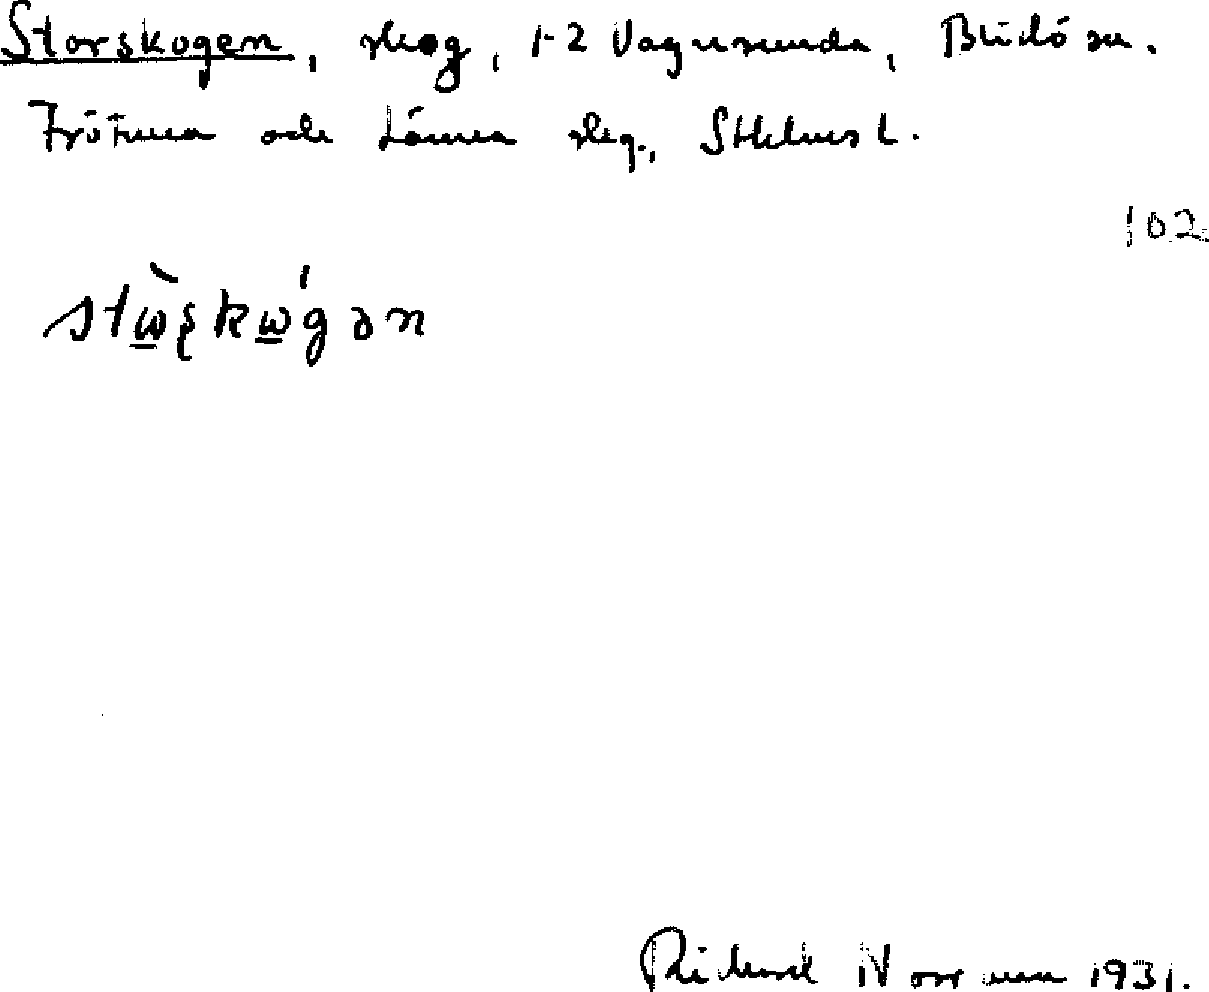 Storskogen, skog, 1-2 Vagnsunda, Blidö sn.
Frötuna och Länna skg., Sthlms l.
102
stὼ̲ʂkώ̲gən
Richard Norrman 1931.